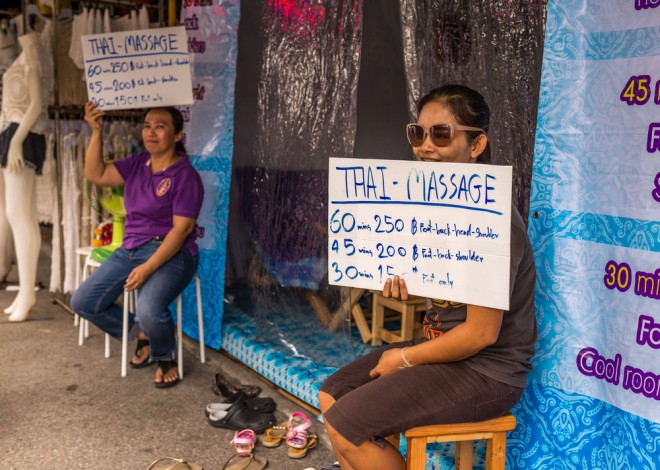 THAI-MASSAGE
60 mins 250 ฿ Foot-back-head-shoulder
45 mins 200 ฿ Foot-back-shoulder
30 mins 150 ฿ Foot only
THAI-MASSAGE
60 mins 250 ฿ Foot-back-head-shoulder
45 mins 200 ฿ Foot-back-shoulder
30 mins Foot only
45
30 mi
Cool room